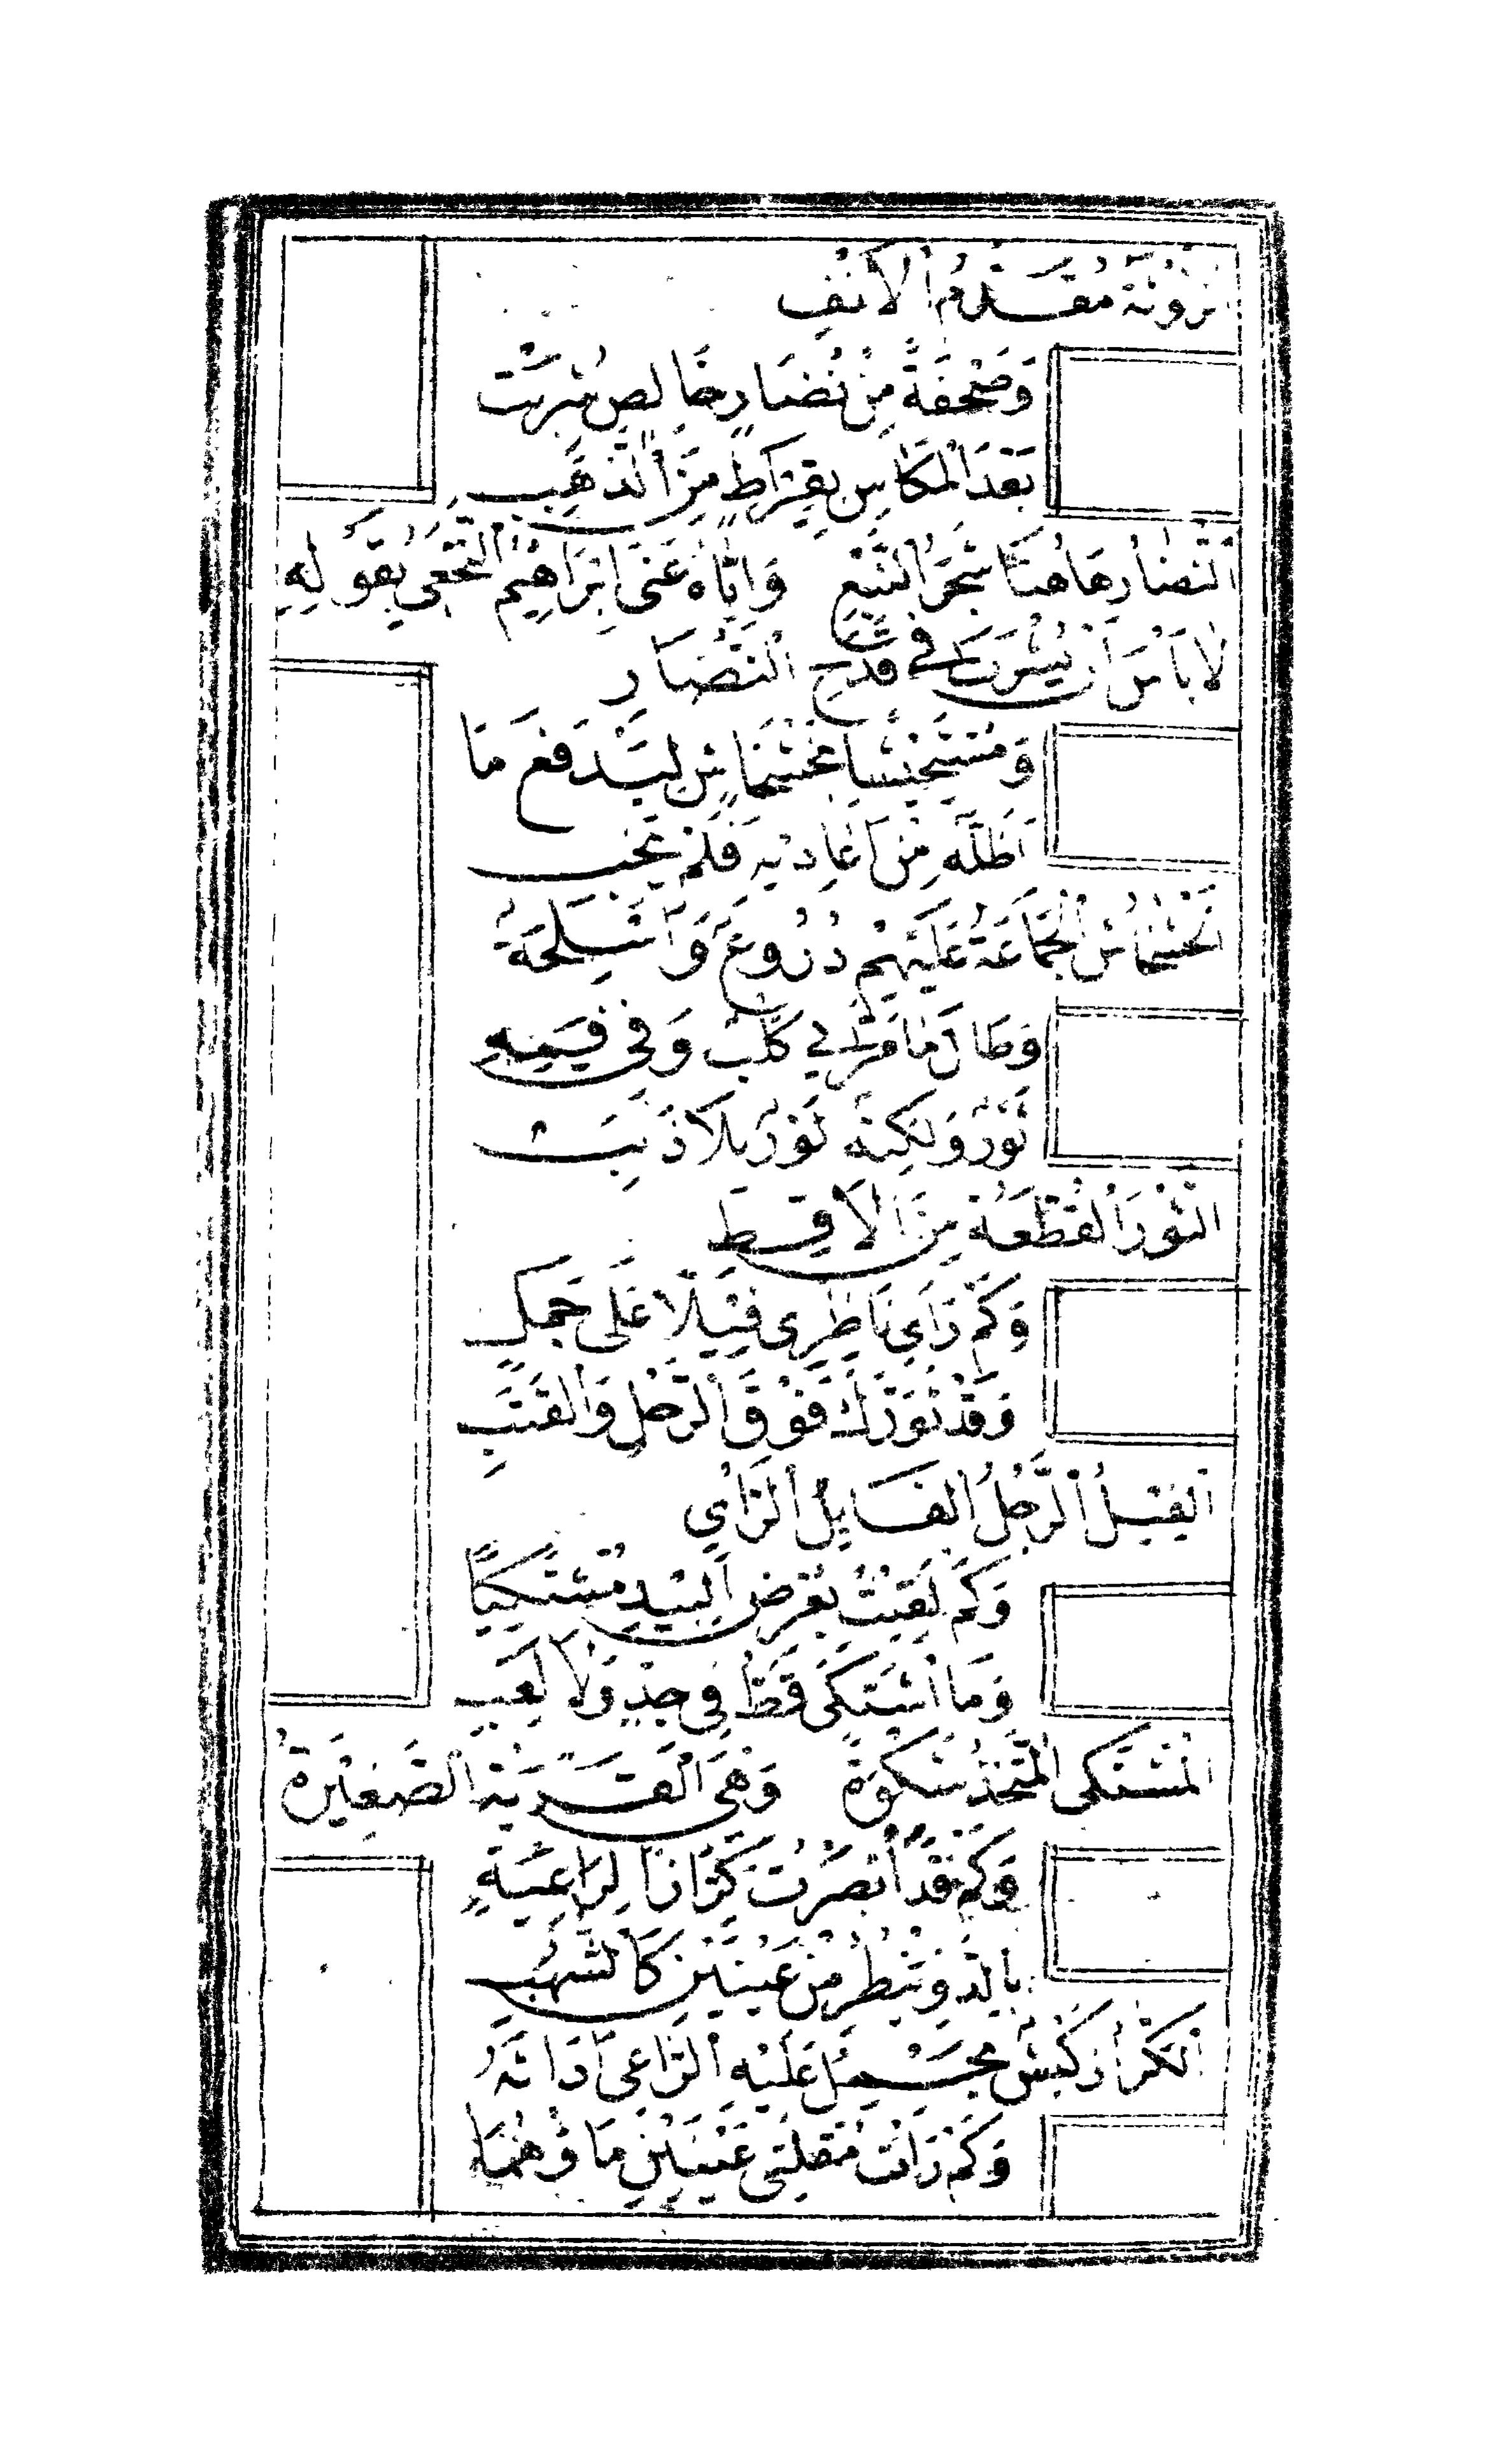 نزونة مُقَدَّمُ الأَنْفِ
وَصَحْفَةً مِنْ نُضَارٍ خَالِصٍ شُرِيَتْ
بَعْدَ الْمَكَاسِ بِقِيْرَاطٍ مِنَ الذَّهَبِ
النُّضَارُ هَاهُنَا شَجَرُ النَّبْعِ وَاِيَّاهُ عَنَى اِبْرَاهِيْمُ النَّخَعِي بِقَوْلِهِ
لَا بَأْسَ أَنْ يُشْرَبَ فِي قَدَحِ النُّضَارِ
وَمُسْتَجِيْشًا بِخَشْخَاشٍ لِيَدْفَعَ مَا
أَظَلَّهُ مِنْ أَعَادِيْهِ فَلَمْ يَخِبِ
الْخَشْخَاشُ الْجَمَاعَةُ عَلَيْهِمْ دُرُوعٌ وَأَسْلِحَةٌ
وَطَالَ مَا مَرَّ بِي كَلْبٌ وَفِي فَمِهِ
ثَوْرٌ وَلٰكِنَّهُ ثَوْرٌ بِلَا ذَنَبِ
الثَّوْرُ الْقِطْعَةُ مِنَ الْأَقِطِ
وَكَمْ رَأَى نَاظِرِي فِيْلًا عَلَى جَمَلٍ
وَقَدْ تَوَرَّكَ فَوْقَ الرَّحْلِ وَالْقَتَبِ
الْفِيْلُ الرَّجُلُ الْفَايِلُ الرَّأْيِ
وَكَمْ لَقِيْتُ بِعَرْضِ الْبِيْدِ مُشْتَكِيًا
وَمَا اشْتَكَى قَطُّ فِي جِدٍّ وَلَا لَعِبِ
الْمُشْتَكِي الْمُتَّخِذُ شَكْوَةً وَهِيَ الْقِرْبَةُ الصَّغِيْرَةُ
وَكَمْ قَدْ أَبْصَرْتُ كَرَّازًا لِرَاعِيَةٍ
بِالدَّوِّ يَنْظُرُ مِنْ عَيْنَيْنِ كَالشُّهُبِ
الْكَرَّازُ كَبْشٌ يَحْمِلُ عَلَيْهِ الرَّاعِي أَدَاتَهُ
وَكَمْ رَأَتْ مُقْلَتِي عَيْنَيْنِ مَاؤُهُمَا